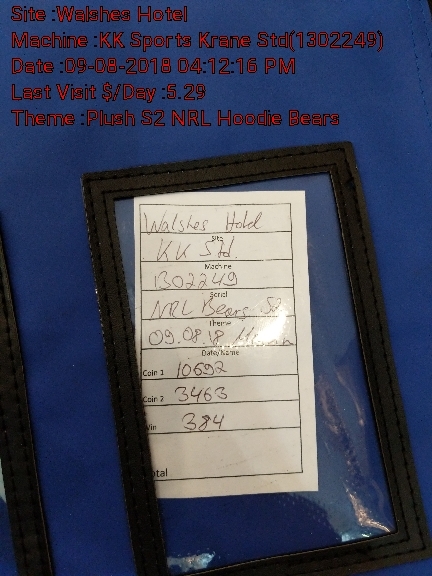 Site :Walshes Hotel
Machine :KK Sports Krane Std(1302249)
Date :09-08-2018 04:12:16 PM
Last Visit $/Day :5.29
Theme :Plush S2 NRL Hoodie Bears
Walshes Hotel
Site
KK Std.
Machine
1302249
Serial
NRL Bears S2
Theme
09.08.18
Date/Name
Coin 1 10692
Coin 2 3463
Win 384
otal